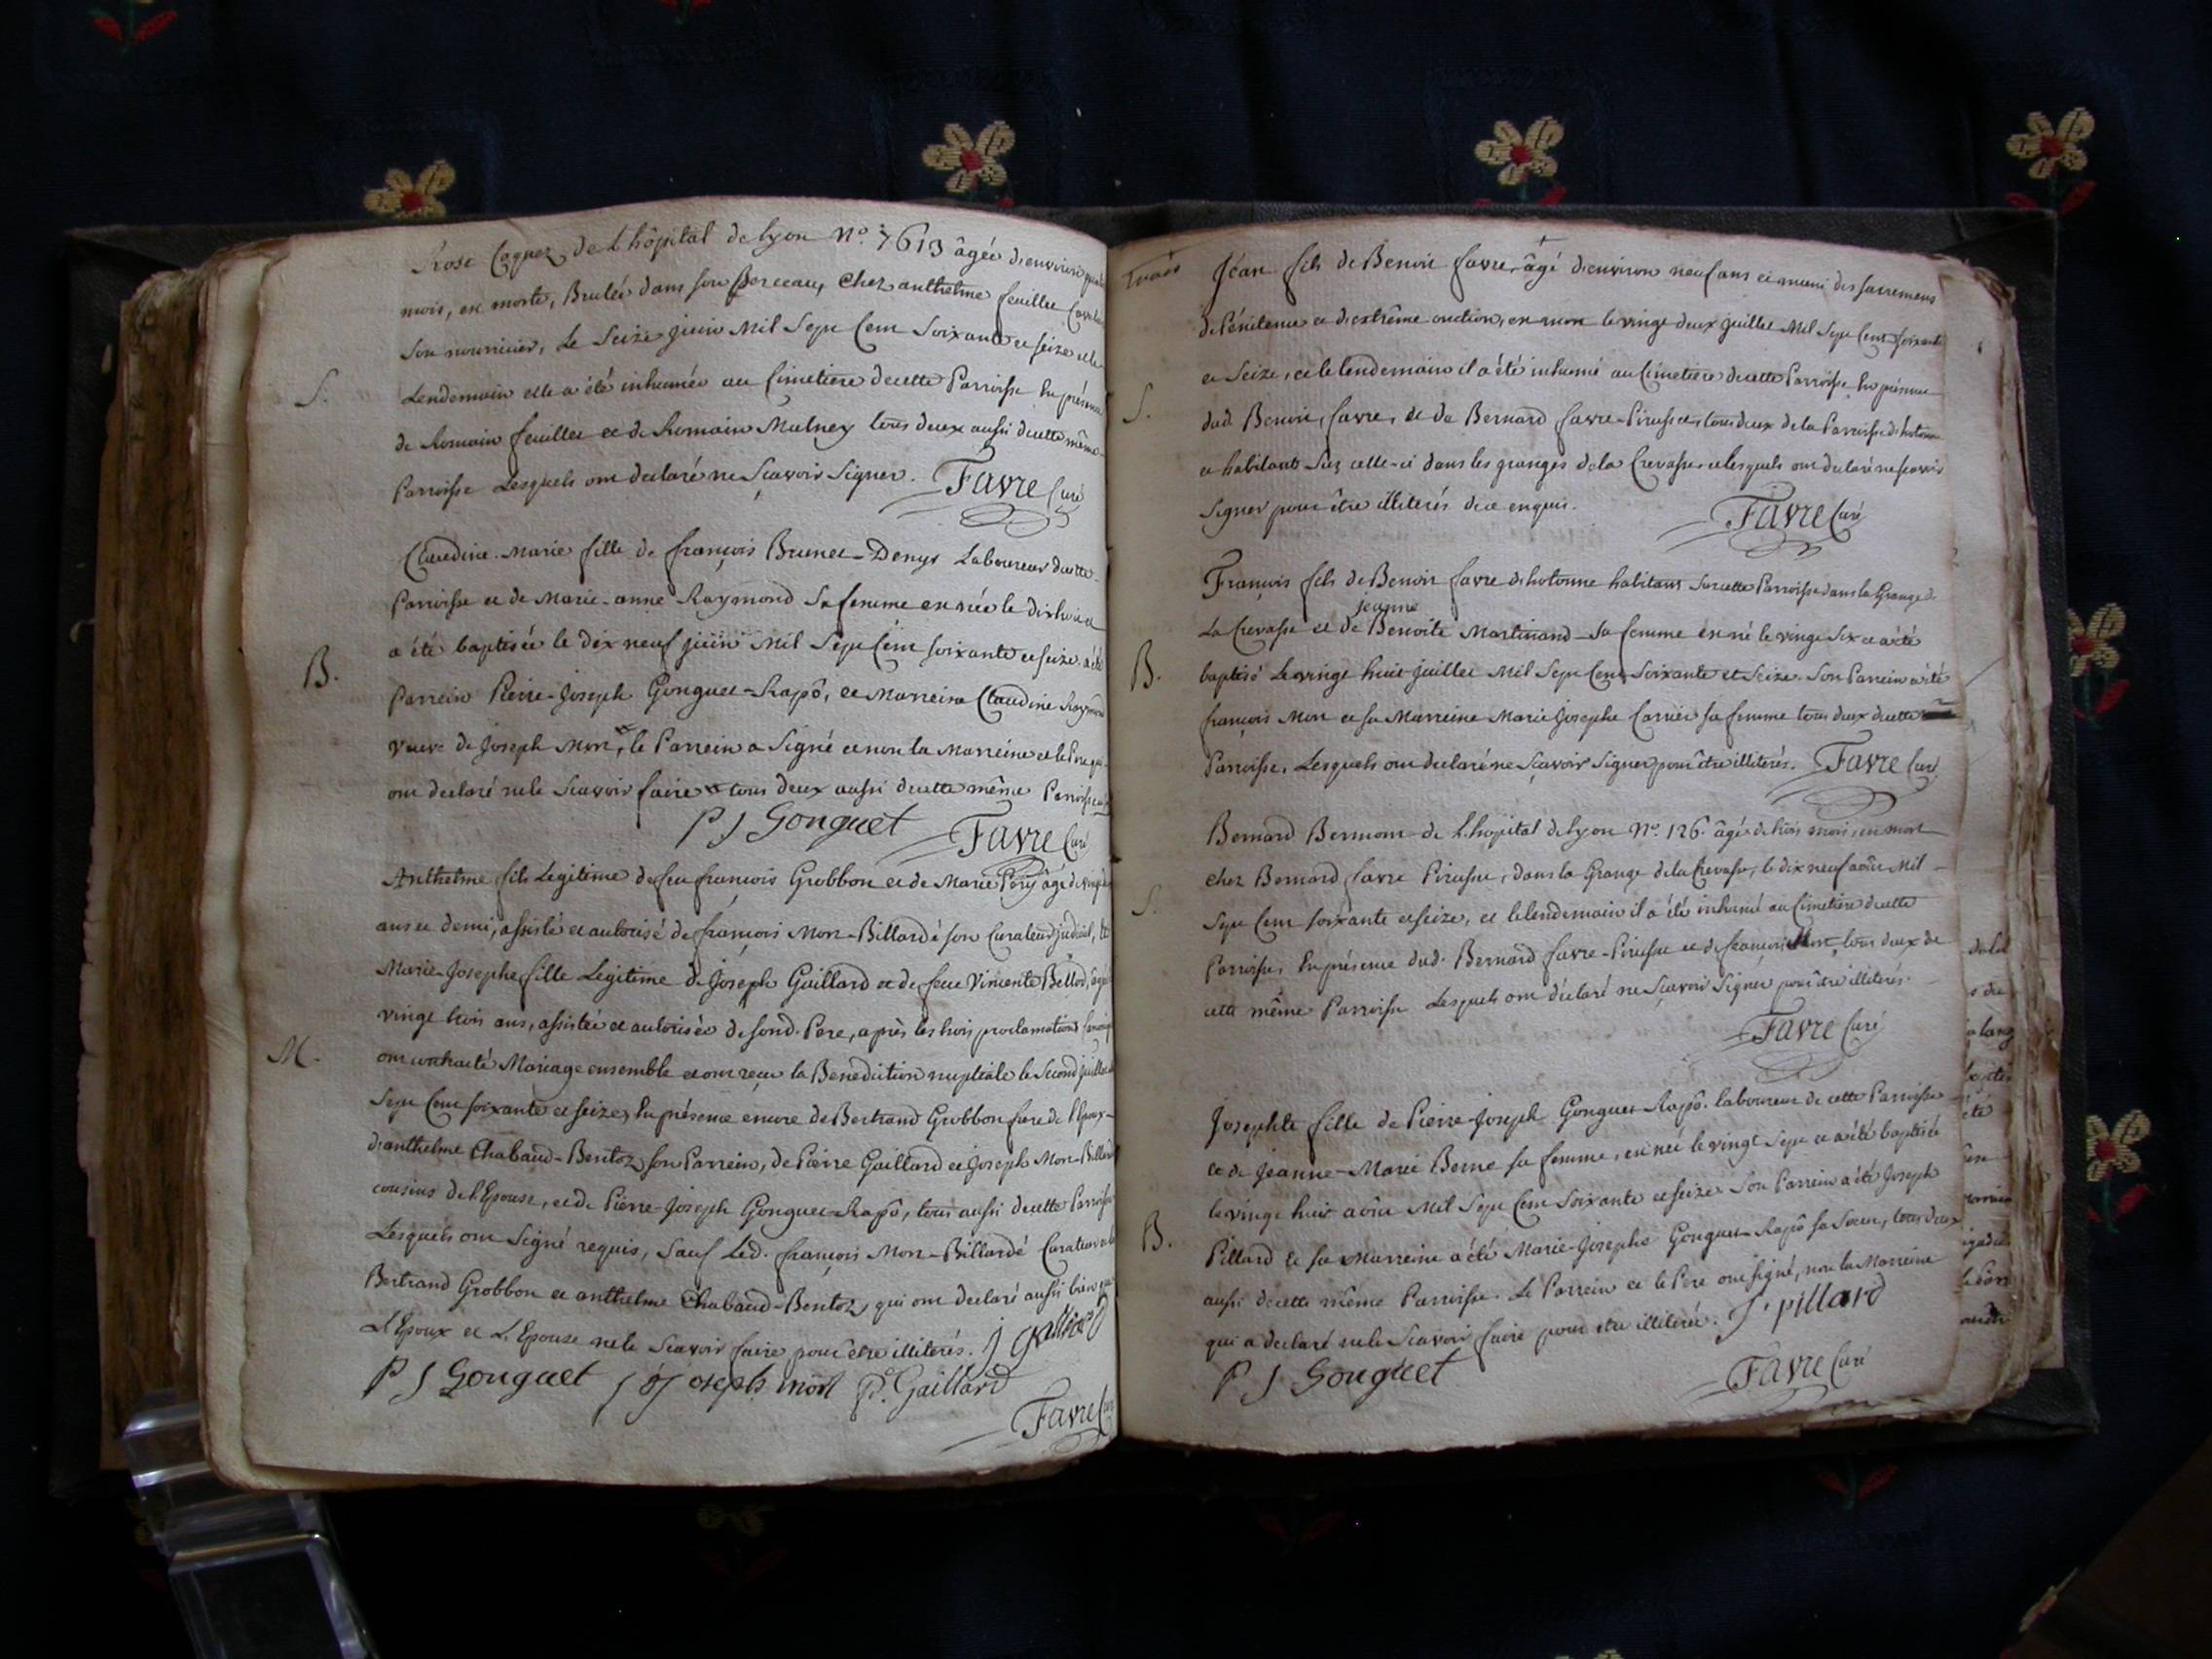 Rose Coquez de L'hôpital de lyon N.º 7613 âgée d'environ
mois, est morte, Brulée dans son Berceau, Chez anthelme feuillet
Son nourricier, Le Seize juin Mil Sept Cent Soixante et seize et le
Lendemain elle a été inhumée au Cimetiere de cette Parroisse En présence
S.
de Romain feuillet et de Romain Mulney tous deux aussi de cette même
Parroisse Lesquels ont declaré ne Scavoir Signer. Favre Curé
Claudine-Marie fille de françois Brunet-Denys Laboureur de cette
Parroisse et de Marie-anne Raymond Sa femme est née le dixhuit et
a été baptisée le dix neuf juin Mil Sept Cent soixante et seize. a été
B.
Parrein Pierre-Joseph Gonguet-Rapô, et Marreine Claudine Raymond
veuve de Joseph Mort, le Parrein a Signé et non la Marreine et le Pere qui
ont declaré ne le Scavoir faire tous deux aussi de cette même Parroisse
P J Gonguet Favre Curé
Anthelme fils Légitime de feu françois Grobbon et de Marie Pery âgé de vingt
ans et demi, assisté et autorisé de françois Mort-Billardé son Curateur judicial, et
Marie-Josephe fille Légitime de Joseph Gaillard et de feue Vincente Bellod, âgée
vingt trois ans, assistée et autorisée de sond. Pere, après les trois proclamations
M.
ont contracté Mariage ensemble et ont reçu la Bénédiction nuptiale le Second juillet
Sept Cent soixante et seize, En présence encore de Bertrand Grobbon frere de l'Epoux
d'anthelme Chabaud-Bentoz son Parrein, de Pierre Gaillard et Joseph Mort-Billardé
cousins de l'Epouse, et de Pierre-Joseph Gonguet-Rapô, tous aussi de cette Parroisse
Lesquels ont Signé requis, Sauf Led. françois Mort-Billardé Curateur
Bertrand Grobbon et anthelme Chabaud-Bentoz, qui ont declaré aussi bien que
L'Epoux et L'Epouse ne le Scavoir faire pour être illiterés. J Galliard
P J Gonguet Joseph mort P. Gaillard
Favre Curé
Jean fils de Benoit favre, âgé d'environ neuf ans et muni des sacremens
de Pénitence et d'extrême onction, est mort le vingt deux juillet Mil Sept Cent soixante
et Seize, et le lendemain il a été inhumé au Cimetiere de cette Parroisse En présence
S.
dud. Benoit favre, et de Bernard favre-Pirusset, tous deux de la Parroisse d'hotonne
et habitants Sur celle-ci dans les granges de la Crevasse, et lesquels ont declaré ne scavoir
Signer pour être illiterés de ce enquis. Favre Curé
François fils de Benoit favre d'hotonne habitant Sur cette Parroisse dans la Grange de
jeanne
La Crevasse et de Benoite Martinand Sa femme est né le vingt six et a été
B.
baptisé Le vingt huit juillet Mil Sept Cent Soixante et Seize. Son Parrein a été
françois Mort et sa Marreine Marie Josephe Carrier sa femme tous deux de cette
Parroisse, Lesquels ont declaré ne Scavoir Signer pour être illiterés. Favre Curé
Bernard Bermont de L'hôpital de Lyon N.º 126. âgé de trois mois, est mort
chez Bernard favre Pirusset, dans la Grange de la Crevasse, le dix neuf août Mil
S.
Sept Cent soixante et seize, et le lendemain il a été inhumé au Cimetiere de cette
Parroisse, En présence dud. Bernard favre-Pirusset et de françois Mort, tous deux de
cette même Parroisse Lesquels ont déclaré ne Scavoir Signer pour être illiterés.
Favre Curé
Josephte fille de Pierre-Joseph Gonguet-Rapô laboureur de cette Parroisse
et de Jeanne-Marie Berne sa femme, est née le vingt Sept et a été baptisée
le vingt huit août Mil Sept Cent Soixante et seize. Son Parrein a été Joseph
B.
Pillard et sa Marreine a été Marie-Josephe Gonguet-Rapô sa Soeur, tous deux
aussi de cette même Parroisse. Le Parrein et le Pere ont signé, non la Marreine
qui a declaré ne le Scavoir faire pour être illiterée. J. pillard
P J Gonguet Favre Curé